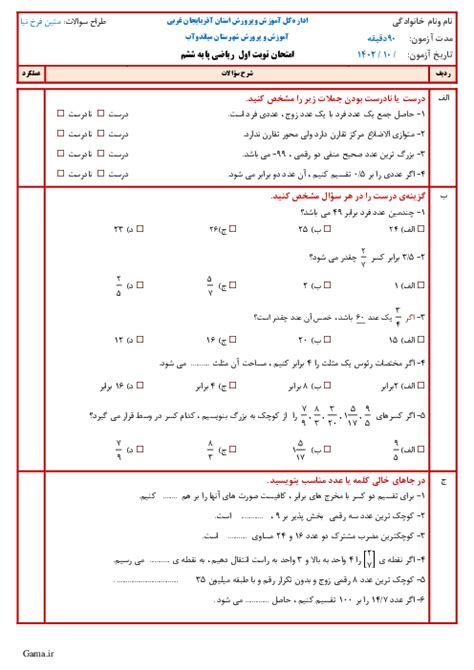 نام ونام خانوادگی اداره کل آموزش و پرورش استان آذربایجان غربی طراح سوالات: متین فرخ نیا
مدت آزمون: ۹۰دقیقه آموزش و پرورش شهرستان میاندوآب
تاریخ آزمون: / ۱۰ / ۱۴۰۲ امتحان نوبت اول ریاضی پایه ششم
ردیف شرح سؤالات عملکرد
الف درست یا نادرست بودن جملات زیر را مشخص کنید.
۱- حاصل جمع یک عدد فرد با یک عدد زوج ، عددی فرد است. درست □ نادرست □
۲- متوازی الاضلاع مرکز تقارن دارد ولی محور تقارن ندارد. درست □ نادرست □
۳- بزرگ ترین عدد صحیح منفی دو رقمی ، ۹۹- می باشد. درست □ نادرست □
۴- اگر عددی را بر ۰/۵ تقسیم کنیم ، آن عدد دو برابر می شود. درست □ نادرست □
ب گزینه‌ی درست را در هر سؤال مشخص کنید.
۱- چندمین عدد فرد برابر ۴۹ می باشد؟
□ الف) ۲۴ □ ب) ۲۵ □ ج) ۲۶ □ د) ۲۳
۲- ۳/۵ برابر کسر ۲/۷ چقدر می شود؟
□ الف) ۱ □ ب) ۲ □ ج) ۵/۷ □ د) ۲/۵
۳- اگر ۳/۴ یک عدد ۶۰ باشد، خمس آن عدد چقدر است؟
□ الف) ۱۵ □ ب) ۲۰ □ ج) ۱۶ □ د) ۱۲
۴- اگر مختصات رئوس یک مثلث را ۴ برابر کنیم ، مساحت آن مثلث ......... می شود.
□ الف) ۲برابر □ ب) ۸ برابر □ ج) ۴ برابر □ د) ۱۶ برابر
۵- اگر کسرهای ۹/۵ ، ۱ ۵/۱۷ ، ۳/۲۰ ، ۸/۳ ، ۷/۹ را از کوچک به بزرگ بنویسیم ، کدام کسر در وسط قرار می گیرد؟
□ الف) ۹/۵ □ ب) ۱ ۵/۱۷ □ ج) ۸/۳ □ د) ۷/۹
ج در جاهای خالی کلمه یا عدد مناسب بنویسید.
۱- برای تقسیم دو کسر با مخرج های برابر ، کافیست صورت های آنها را بر هم ....... کنیم.
۲- کوچک ترین عدد سه رقمی بخش پذیر بر ۹ ، .......... است.
۳- کوچکترین مضرب مشترک دو عدد ۱۶ و ۲۴ مساوی .......... است.
۴- اگر نقطه ی [۲ ۷] را ۴ واحد به بالا و ۳ واحد به راست انتقال دهیم ، به نقطه ی .......... می رسیم.
۵- کوچک ترین عدد ۸ رقمی زوج و بدون تکرار رقم و با طبقه میلیون ۳۵ .................... .
۶- اگر ۱۴/۷ را بر ۱۰۰ تقسیم کنیم ، حاصل .......... می شود .
Gama.ir